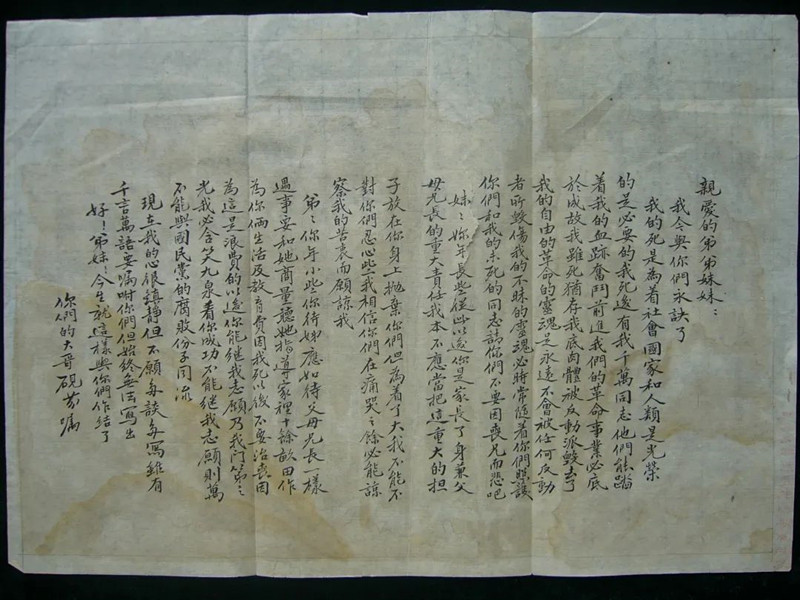 親愛的弟弟妹妹：
我今與你們永訣了
我的死是為着社會國家和人類是光榮
的是必要的我死後有我千萬同志他們能踏
着我的血跡奮鬥前進我們的革命事業必底
於成故我雖死猶存我底肉體被反動派毀去了
我的自由的革命的靈魂是永遠不會被任何反動
者所毀傷我的不昧的靈魂必時常隨着你們照護
你們和我的未死的同志請你們不要因喪兄而悲吧
妹妹你年長些從此以後你是家長了身兼父
母兄長的重大責任我本不應當把這重大的担
子放在你身上拋棄你們但為着了大我不能不
對你們忍心些我相信你們在痛哭之餘必能諒
察我的苦衷而願諒我
弟弟你年小些你待姊應如待父母兄長一樣
遇事要和她商量聽她指導家裡十餘畝田作
為你倆生活及教育費因我死以後不要治喪因
為這是浪費的以後你能繼我志願乃我門第之
光我必含笑九泉看你成功不能繼我志願則萬
不能與國民黨的腐敗份子同流
現在我的心很鎮靜但不願多談多寫雖有
千言萬語要囑咐你們但始終無法寫出
好！弟妹！今生就這樣與你們作結了
你們的大哥硯芬囑